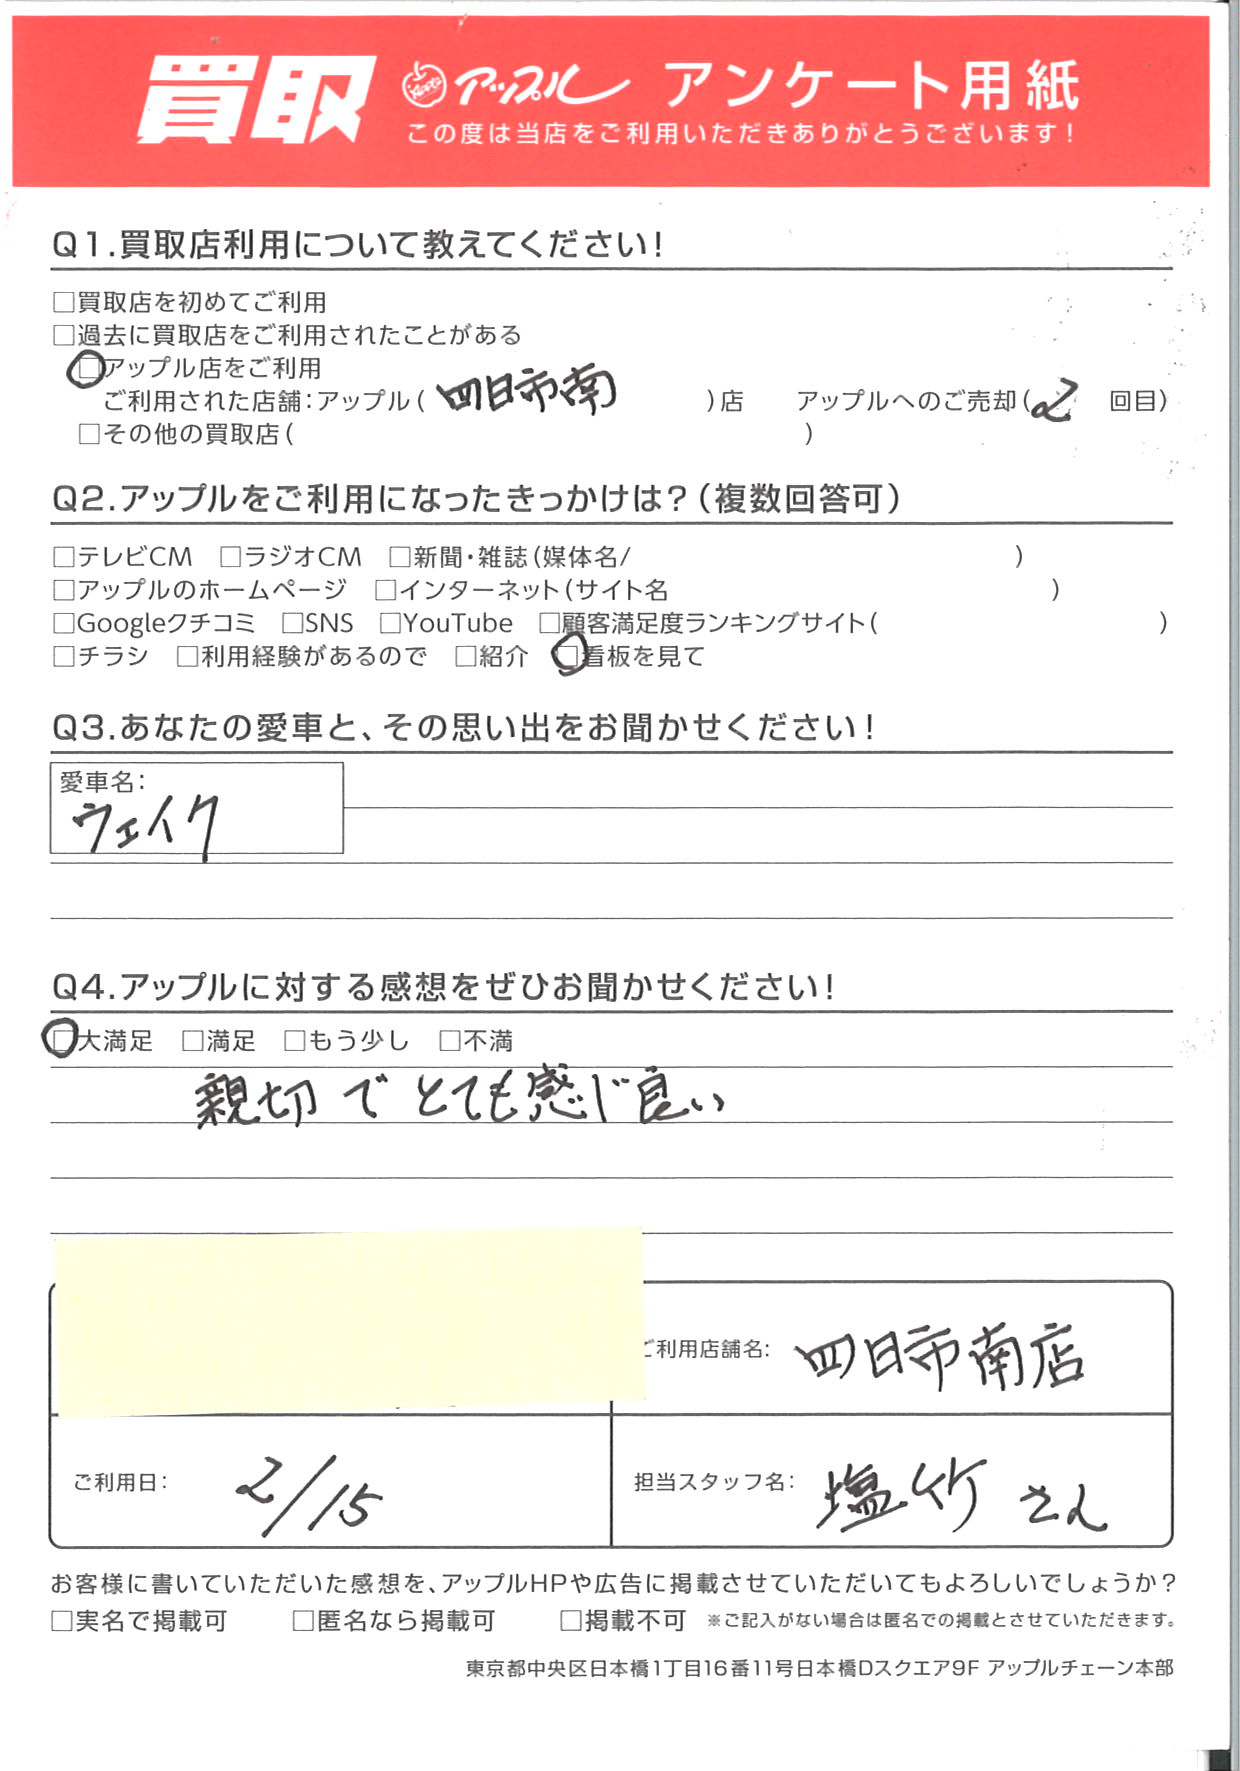 買取 アップル アンケート用紙
この度は当店をご利用いただきありがとうございます！
Q1.買取店利用について教えてください！
□買取店を初めてご利用
□過去に買取店をご利用されたことがある
□アップル店をご利用
ご利用された店舗：アップル（四日市南）店 アップルへのご売却（2回目）
□その他の買取店（ ）
Q2.アップルをご利用になったきっかけは？（複数回答可）
□テレビCM □ラジオCM □新聞・雑誌（媒体名/ ）
□アップルのホームページ □インターネット（サイト名 ）
□Googleクチコミ □SNS □YouTube □顧客満足度ランキングサイト（ ）
□チラシ □利用経験があるので □紹介 □看板を見て
Q3.あなたの愛車と、その思い出をお聞かせください！
愛車名：
ウェイク
Q4.アップルに対する感想をぜひお聞かせください！
□大満足 □満足 □もう少し □不満
親切で とても感じ良い
ご利用店舗名： 四日市南店
ご利用日： 2/15 担当スタッフ名： 塩竹 さん
お客様に書いていただいた感想を、アップルHPや広告に掲載させていただいてもよろしいでしょうか？
□実名で掲載可 □匿名なら掲載可 □掲載不可 ※ご記入がない場合は匿名での掲載とさせていただきます。
東京都中央区日本橋1丁目16番11号日本橋Dスクエア9F アップルチェーン本部